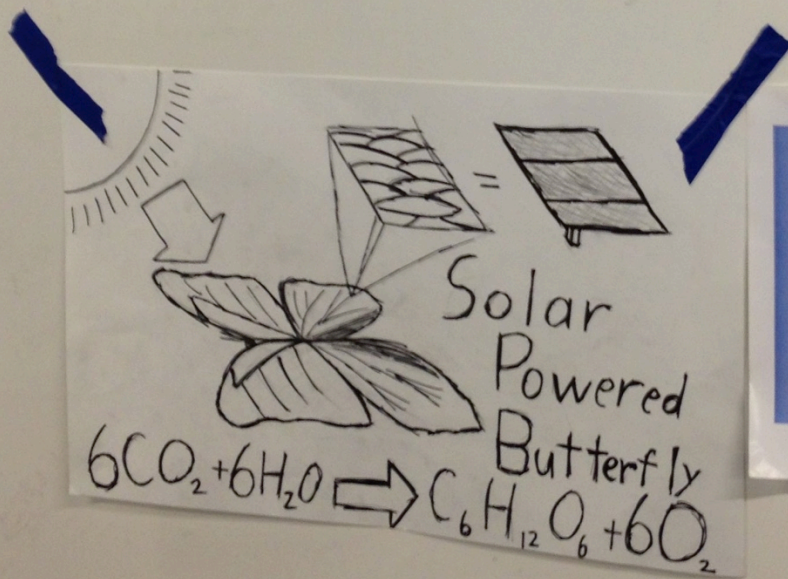 =
Solar
Powered
Butterfly
6CO₂+6H₂O ⇨ C₆H₁₂O₆+6O₂